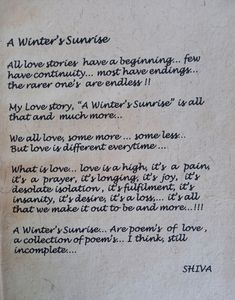 A Winter's Sunrise
All love stories have a beginning... few
have continuity... most have endings...
the rarer one's are endless !!
My Love story, "A Winter's Sunrise" is all
that and much more...
We all love, some more ... some less...
But love is different everytime ...
What is love... love is a high, it's a pain,
it's a prayer, it's longing, it's joy, it's
desolate isolation , it's fulfilment, it's
insanity, it's desire, it's a loss,... it's all
that we make it out to be and more...!!!
A Winter's Sunrise... Are poem's of love ,
a collection of poem's... I think, still
incomplete....
SHIVA